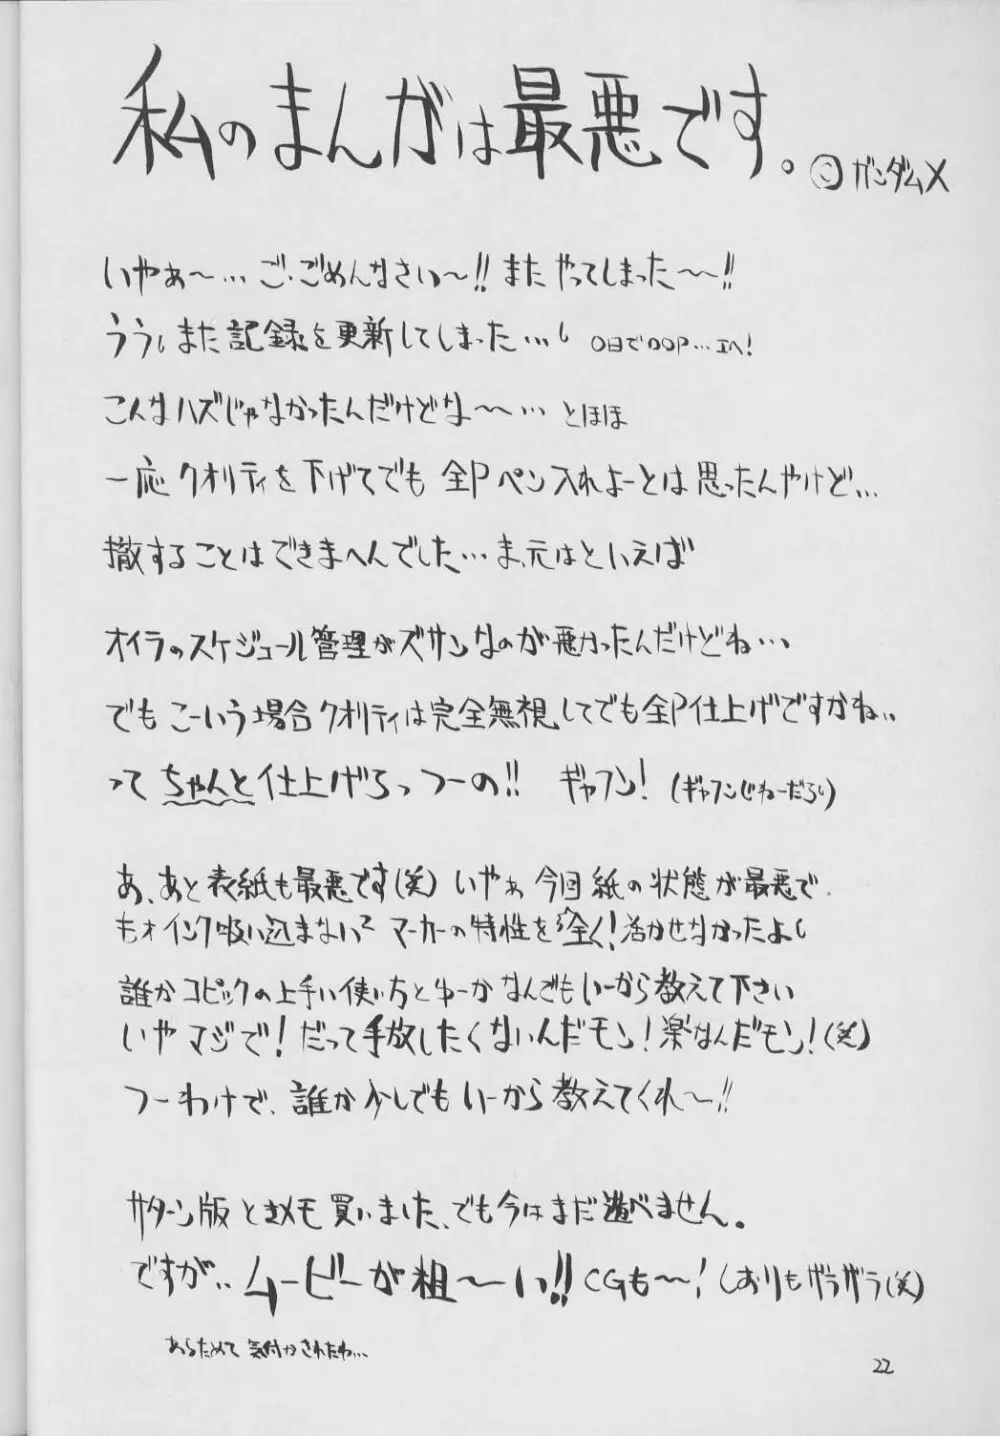 私のまんがは最悪です。
©ガンダムX
いやぁ〜…ご・ごめんなさい〜!!またやってしまった〜〜!!
ううっまた記録を更新してしまった…
0日で00P…エヘ!
こんなハズじゃなかったんだけどな〜〜…とほほ
一応クオリティを下げてでも全Pペン入れよーとは思ったんやけど…
撤することはできまへんでした…ま、元はといえば
オイラのスケジュール管理がズサンなのが悪かったんだけどね…、
でもこーいう場合クオリティは完全無視してでも全P仕上げですかね..
ってちゃんと仕上げろっつーの!! ギャフン!(ギャフンじねーだろい)
あ、あと表紙も最悪です(笑)いやぁ今回紙の状態が最悪で、
もォインク吸い込まないマーカーの特性を全く!活かせなかったよ
誰かコピックの上手い使い方とゆーかなんでもいーから教えて下さい
いやマジで!だって手放したくないんだモン!楽なんだモン!(笑)
つーわけで、誰か少しでもいーから教えてくれ〜!!
サターン版ときメモ買いました、でも今はまだ遊べません。
ですが..ムービーが粗〜い!!CGも〜〜!しおりもザラザラ(笑)
あらためて気付かされたわ…
22